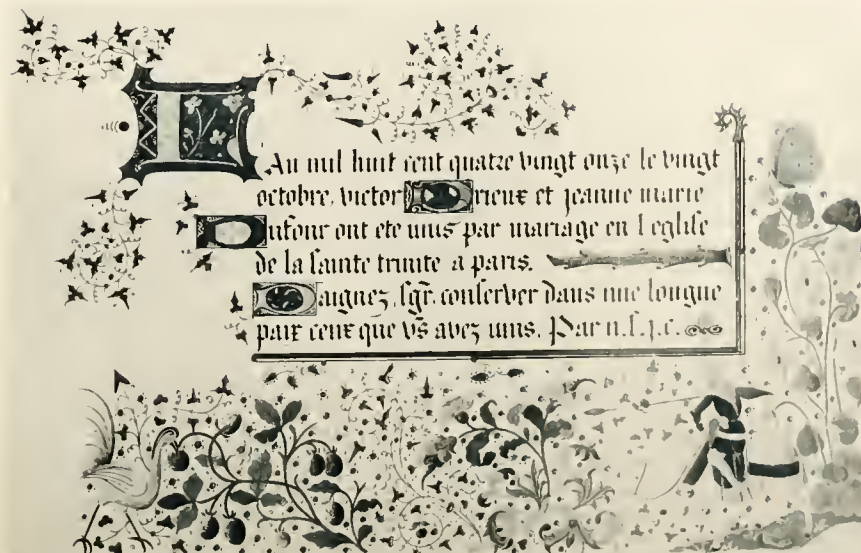 L An mil huit cent quatre vingt onze le vingt
octobre, victor Drieux et jeanne marie
Dufour ont ete unis par mariage en l eglise
de la sainte trinite a paris.
Daignez, sgr. conserver dans une longue
paix ceux que vs avez unis. Par n.s.j.c.